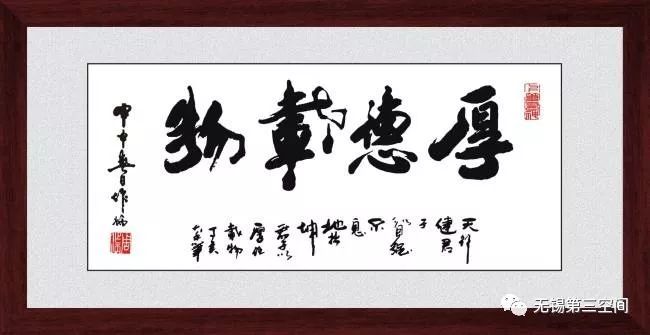 厚德載物
天行
健君
子
以自强
不
息
地势
坤
君子以
厚德
載物
无锡第三空间